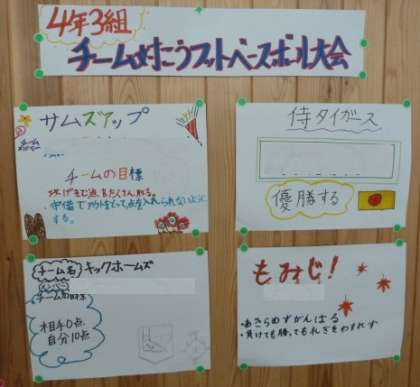 4年3組
チーム対こうフットベースボール大会
サムズアップ
チームの目標
・守備でアウトをとって、点を入れられないように
する。
侍タイガース
優勝する
チーム名 キックホームズ
チームの目標
相手0点
自分10点
もみじ!
・あきらめずがんばる
・負けても勝ってもれぎをわすれず